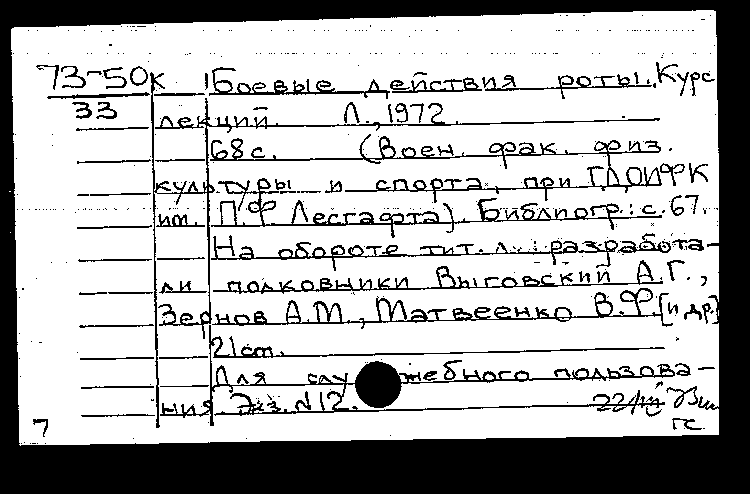 73-50к Боевые действия роты. Курс
33
лекций. Л., 1972.
68 с. (Воен. фак. физ.
культуры и спорта, при ГДОИФК
им. П.Ф. Лесгафта). Библиогр.: с. 67.
На обороте тит. л.: разработа-
ли полковники Выговский А.Г.,
Зернов А.М., Матвеенко В.Ф. [и др.]
21 cm.
Для служебного пользова-
ния. Экз. №12.
7 ГС